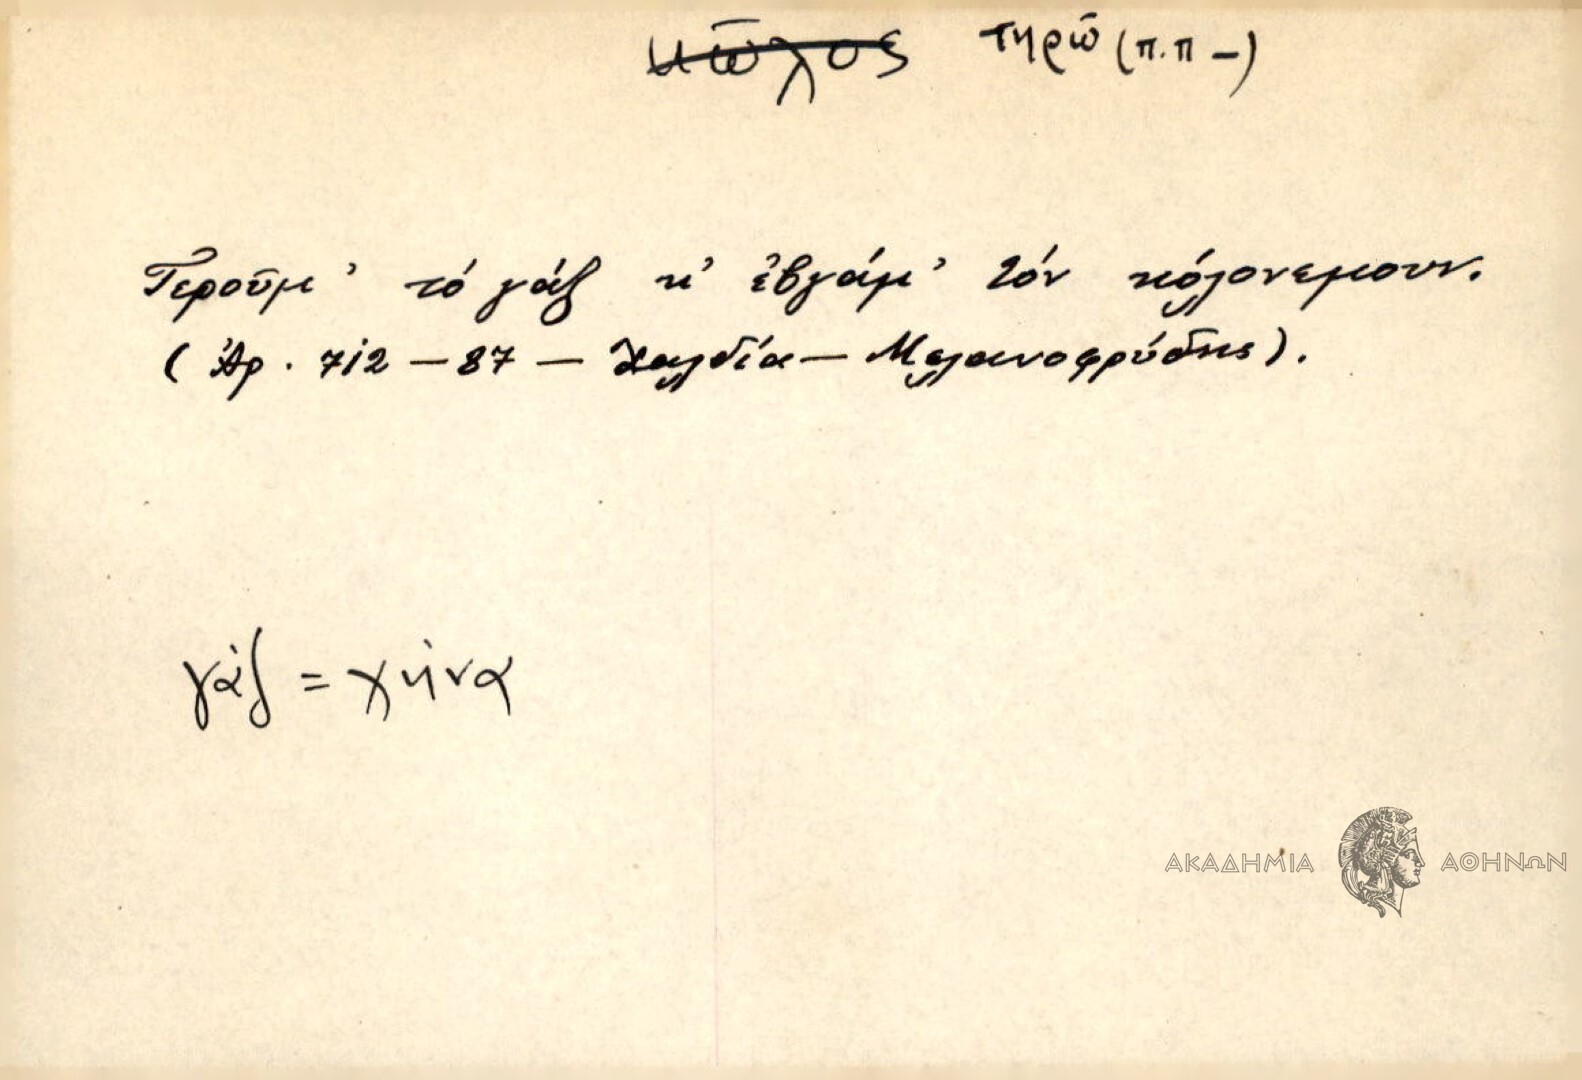 κῶλος τηρῶ (π.π -)
Τεροῦμ' τό γάζ κ' ἐβγάμ' τόν κόλονεμουν.
(Ἀρ. 712 - 87 - Χαλδία - Μελανοφρύδης).
γάζ = χήνα
ΑΚΑΔΗΜΙΑ ΑΘΗΝΩΝ